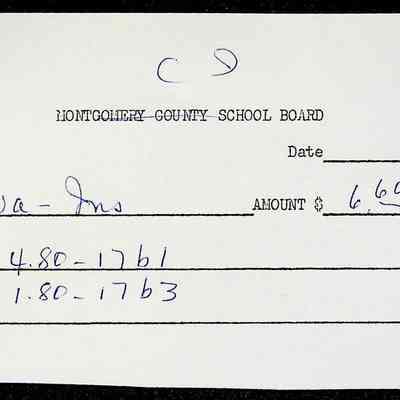 C D
MONTGOMERY COUNTY SCHOOL BOARD
Date
a - Ins AMOUNT $ 6.60
4.80 - 17b1
1.80 - 17b3